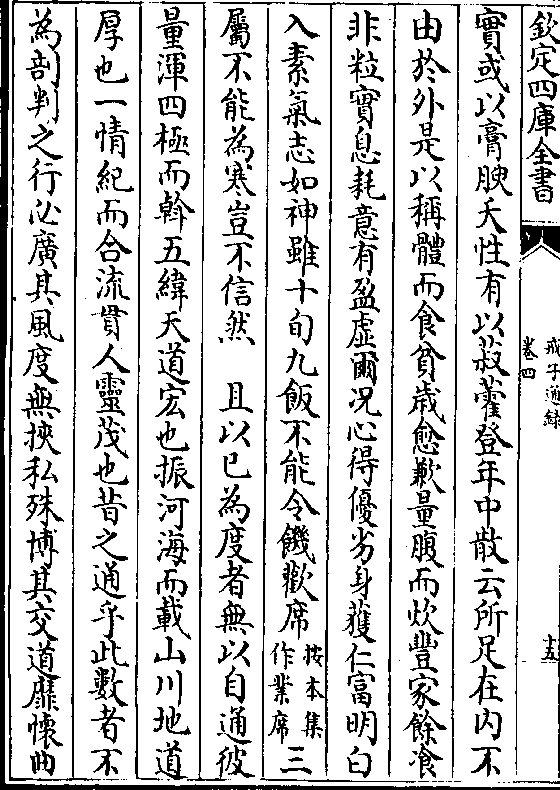 欽定四庫全書
戒子通錄
卷四
十五
實或以膏腴夭性有以菽藿登年中散云所足在内不
由於外是以稱體而食貧歲愈歉量腹而炊豐家餘飡
非粒實息耗意有盈虛爾况心得優劣身獲仁富明白
入素氣志如神雖十旬九飯不能令饑歡席按本集作業席三
屬不能為寒豈不信然　且以已為度者無以自通彼
量渾四極而斡五緯天道宏也振河海而載山川地道
厚也一情紀而合流貫人靈茂也昔之通乎此數者不
為剖判之行必廣其風度無挾私殊博其交道靡懷曲